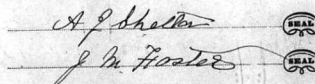 A J Shelton SEAL
J M Foster SEAL